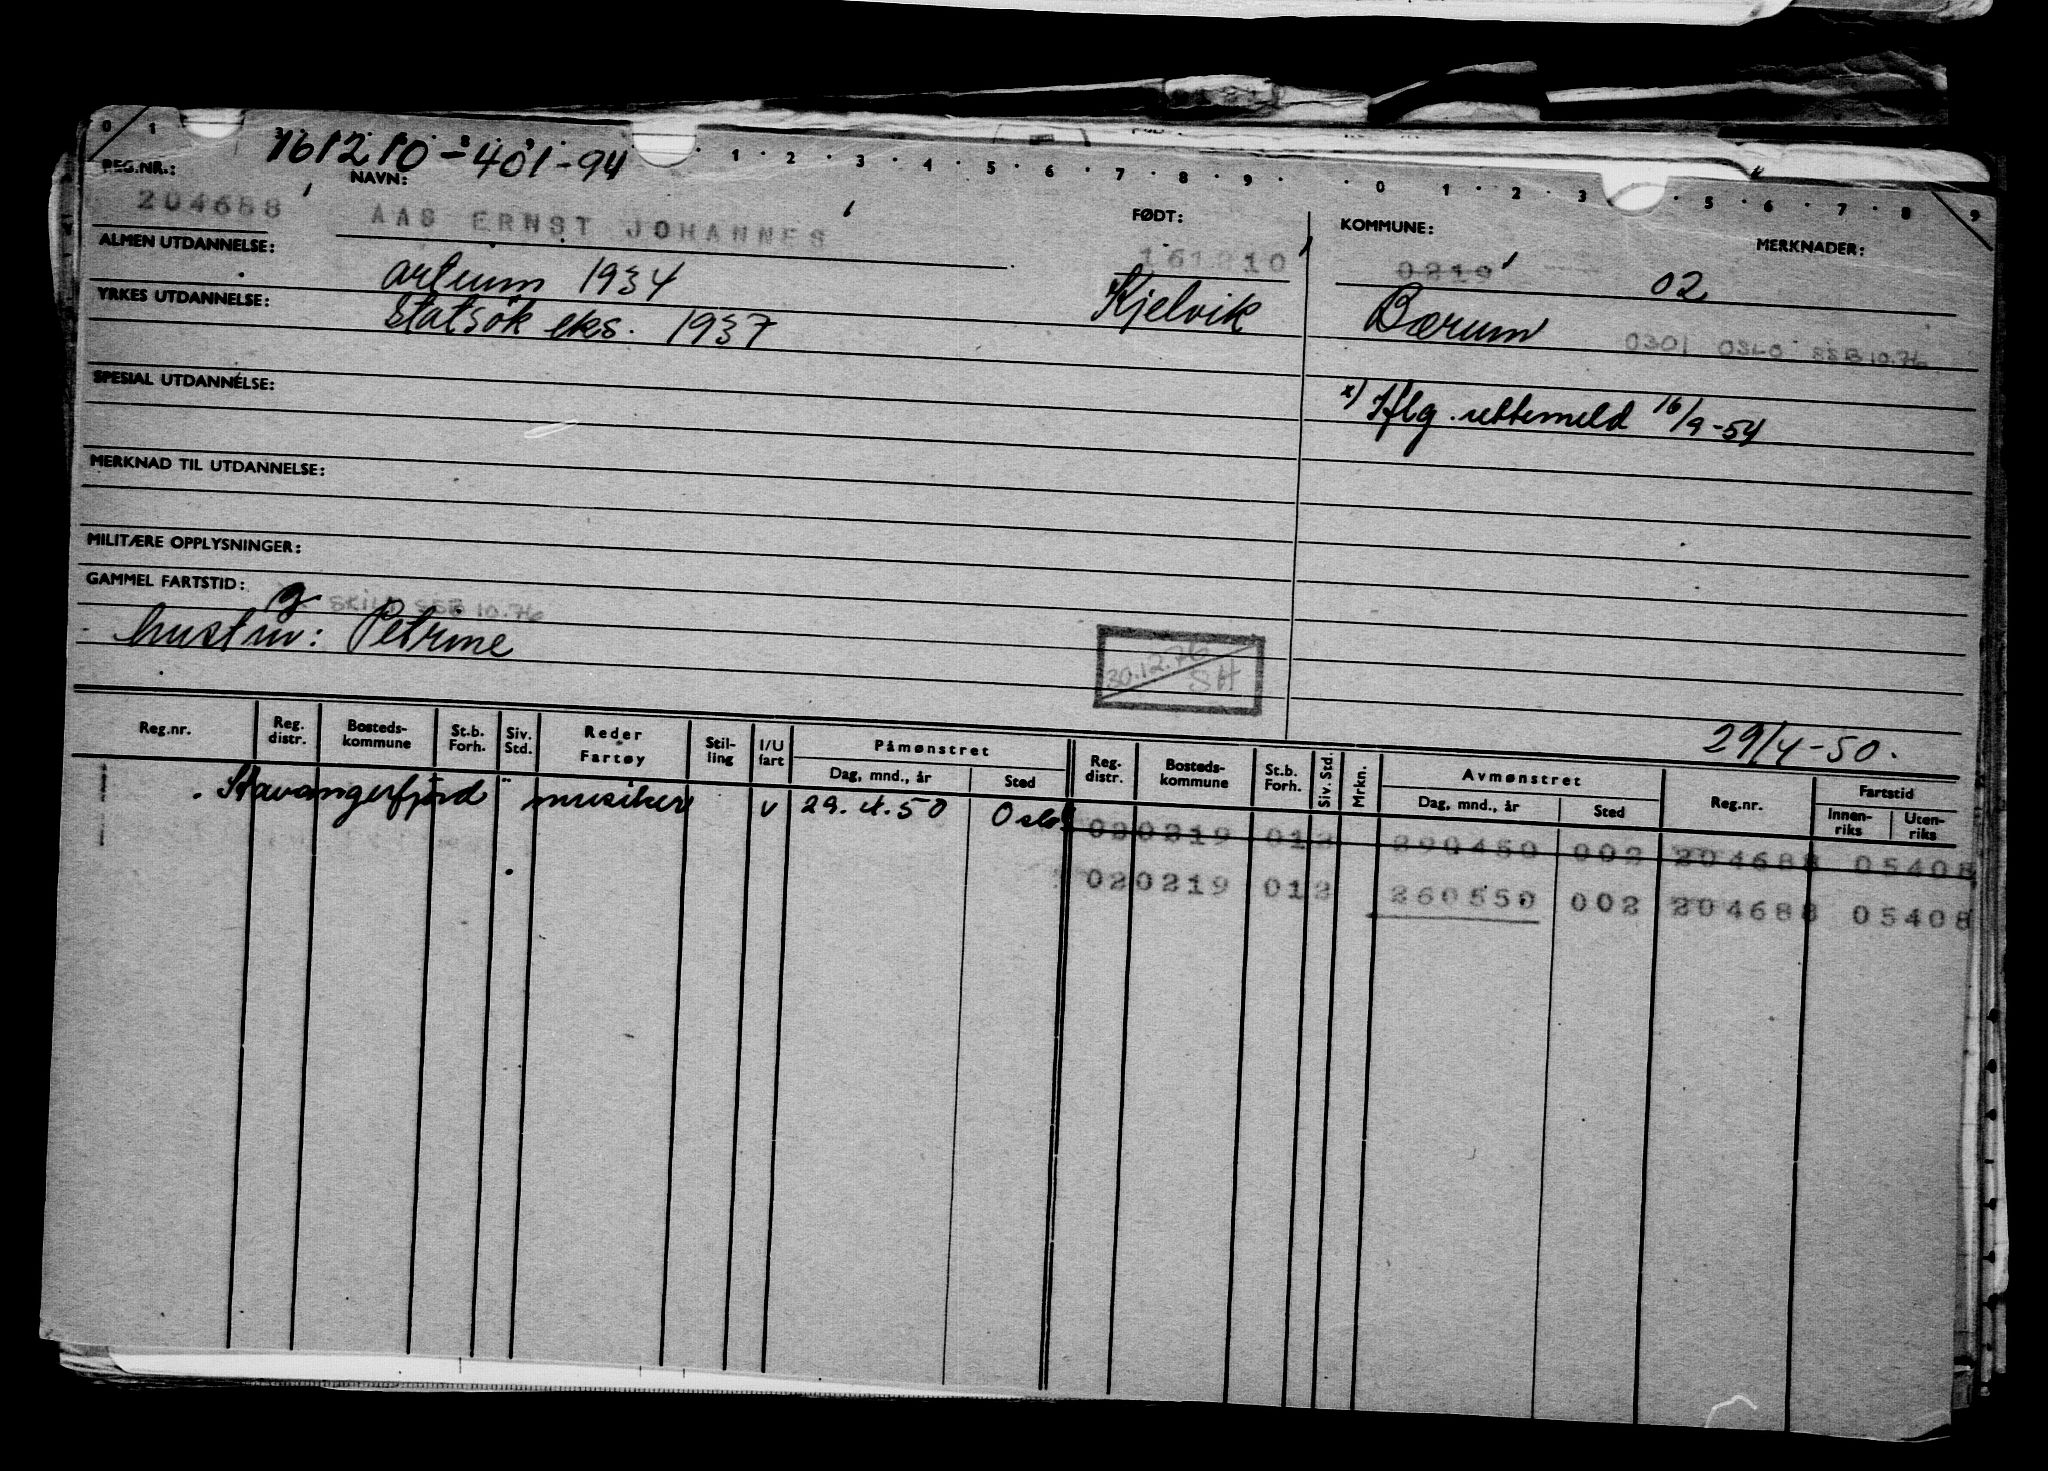 161210-401-94
0 1 1 2 3 4 5 6 7 8 9 0 1 2 3 5 6 7 8 9
REG.NR.: NAVN: FØDT: KOMMUNE: MERKNADER:
204688 AAS ERNST JOHANNES 161210 0219
ALMEN UTDANNELSE: artium 1934 Kjelvik 02
YRKES UTDANNELSE: Statsøk eks. 1937 Bærum 0301 OSLO SSB 10.76
SPESIAL UTDANNELSE: x) Iflg. rettemeld 16/9-54
MERKNAD TIL UTDANNELSE:
MILITÆRE OPPLYSNINGER:
GAMMEL FARTSTID: g SKILT SSB 10.76
hustru: Petrine
30.12.76
SH
29/4-50.
Reg.nr. Reg. distr. Bosteds-kommune St.b. Forh. Siv. Std. Reder Fartøy Stil-ling I/U fart Påmønstret Dag, mnd., år Sted Reg. distr. Bosteds-kommune St.b. Forh. Siv. Std. Mrkn. Avmønstret Dag, mnd., år Sted Reg.nr. Fartstid Innen-riks Uten-riks
"Stavangerfjord" musiker v 29.4.50 Oslo
02 0219 01 2 290450 002 204688 05408
02 0219 01 2 260550 002 204688 05408